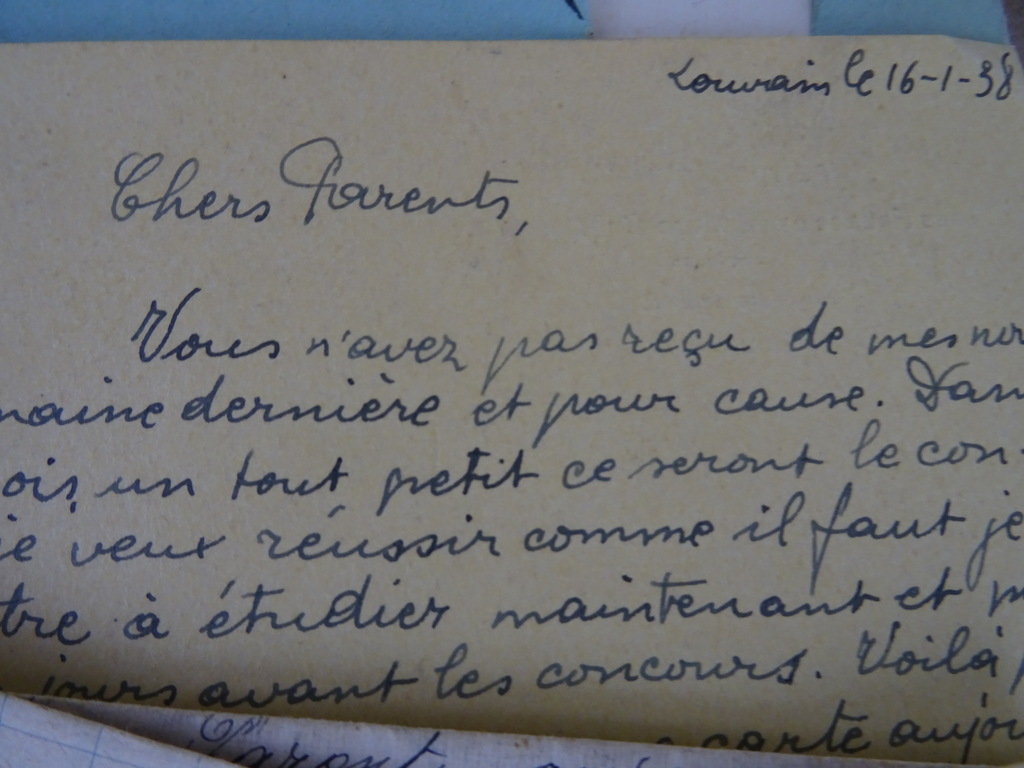 Louvain le 16-1-38
Chers Parents,
Vous n'avez pas reçu de mes nou
maine dernière et pour cause. Dans
ois, un tout petit ce seront le con-
ie veux réussir comme il faut je
tre à étudier maintenant et
jours avant les concours. Voilà
carte aujou